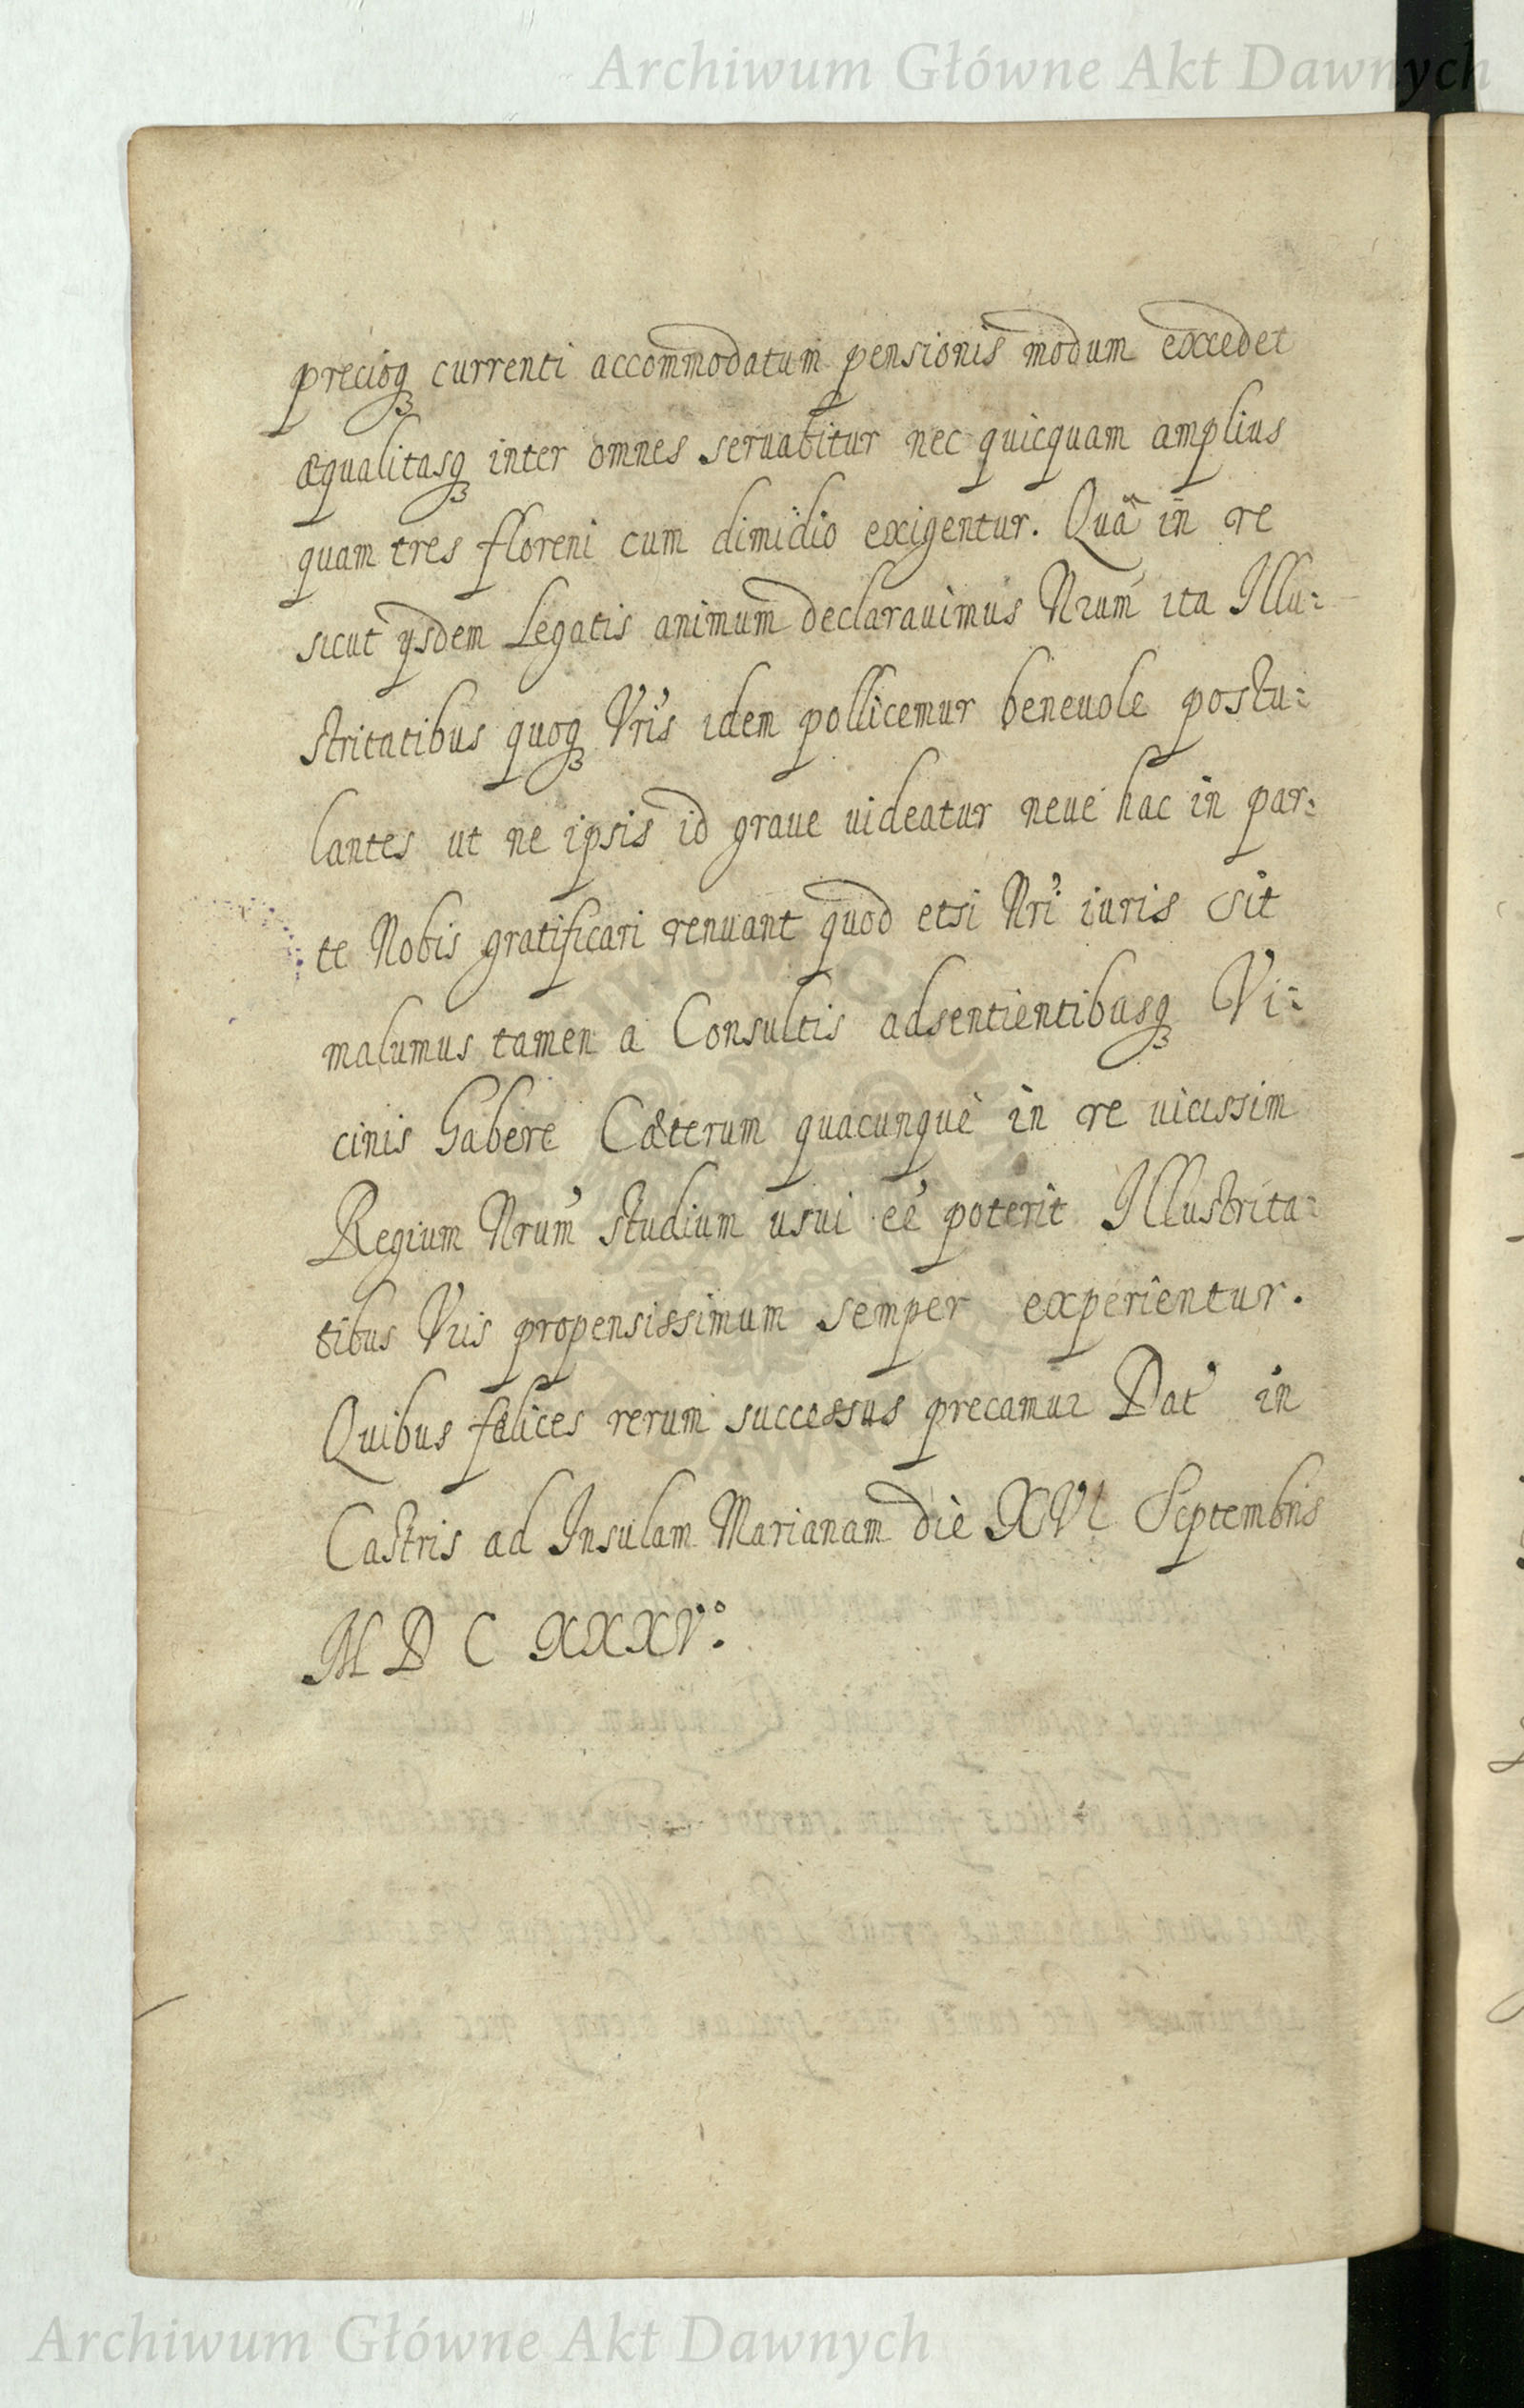 Archiwum Główne Akt Dawnych
precioq₃ currenti accommodatum pensionis modum excedet
æqualitasq₃ inter omnes seruabitur nec quicquam amplius
quam tres floreni cum dimidio exigentur. Quâ in re
sicut ijsdem Legatis animum declarauimus Nrum ita Illu=
stritatibus quoq₃ Vris idem pollicemur beneuole postu=
lantes ut ne ipsis id graue uideatur neue hac in par=
te Nobis gratificari renuant quod etsi Nri iuris sit
malumus tamen a Consultis adsentientibusq₃ Vi=
cinis habere Cæterum quacunque in re uicissim
Regium Nrum studium usui eé poterit Illustrita=
tibus Vris propensissimum semper experientur.
Quibus felices rerum successus precamur Dat in
Castris ad Insulam Marianam die XVI Septembris
M D C XXXV°.
Archiwum Główne Akt Dawnych